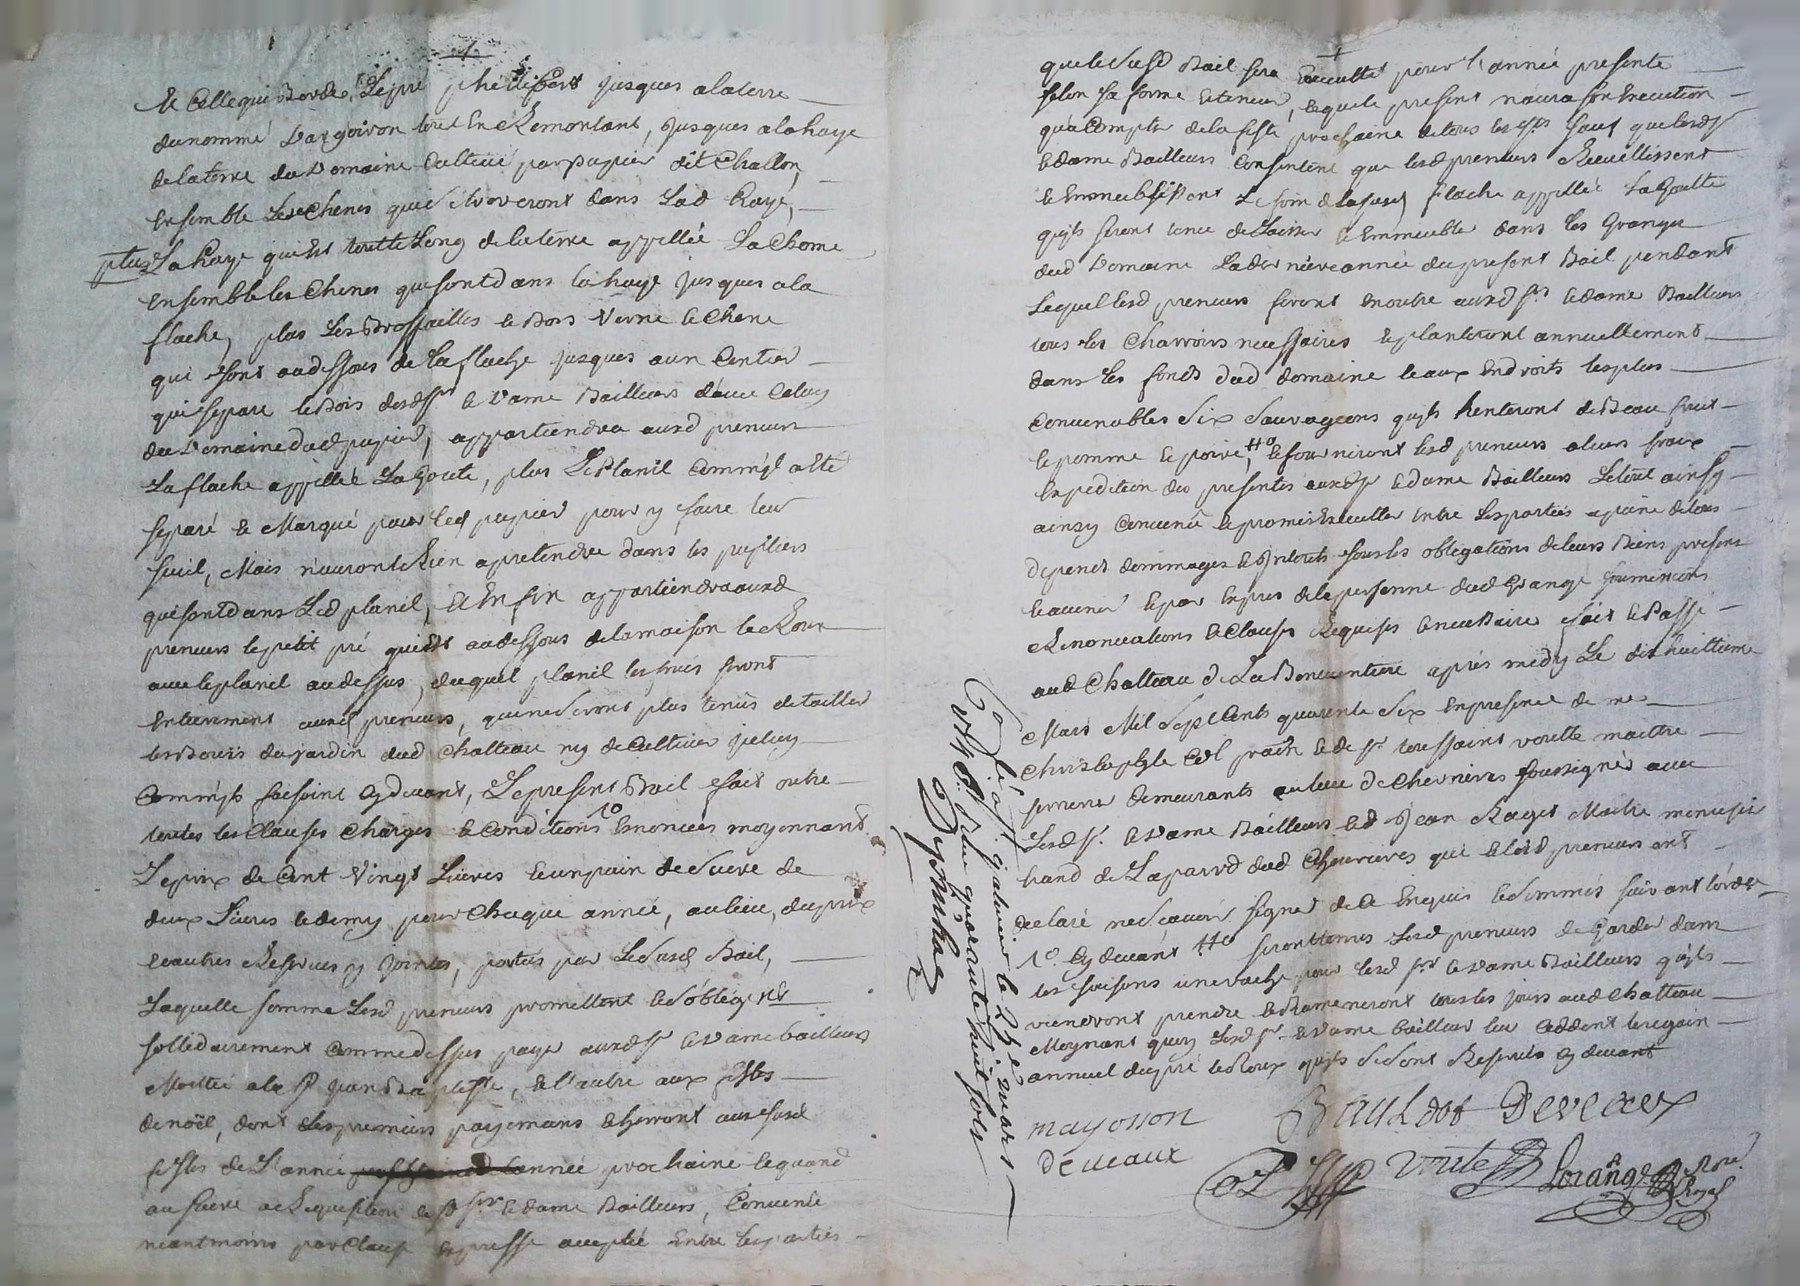 et Celle qui Borde Le pré jusques a la terre
du nommé Dargoiron tout En Remontant, jusques a la haye
de la terre du Domaine Cultivé par papier dit Challon,
ensemble Les Chenes qui se trouveront dans Lad haye,
plus La haye qui est toutte Long de la terre appellée La Chome
ensemble les Chenes qui sont dans la haye jusques a la
flache, plus Les Brossailles le Bois Verne le Chene
qui sont au dessous de La flache jusques au Centier
qui separe le Bois desd Srs et Dame Bailleurs d'avec Celuy
du Domaine dud papier, appartiendra auxd preneurs
La flache appellée La Goute, plus Le Planil Comm'il a Eté
separé et Marqué pour led papier pour y faire leur
, Mais n'auront Rien a pretendre dans les
qui sont dans Led planil, et Enfin appartiendra auxd
preneurs le petit pré qui est au dessous de la maison le Roux
avec le planil au dessus, duquel planil les fruits seront
entierement auxd preneurs, qui ne seront plus tenus de tailler
les Bouis du jardin dud Chatteau ny de Cultiver jceluy
Comm'ils faisoint Cy devant, Le present Bail fait outre
toutes les Clauses Charges et Conditions 1º Enoncées moyennant
Le prix de Cent Vingt Livres et un pain de Sucre de
deux Livres et demy pour Chaque année, au lieu, du prix
et autres Reserves y jointes, portés par Le susd Bail,
Laquelle somme Lesd preneurs promettent et s'obligent
sollidairement Comme dessus payer auxd Sr et Dame bailleurs
Moitié a la St Jean Baptiste, et l'autre aux festes
de noël, dont Les premiers payemans Echerront aux susd
festes de L'année année prochaine et quand
au sucre a Requisition desd Srs et dame Bailleurs, Convenu
neantmoins par Clause Expresse acceptée Entre les parties
que le susd Bail sera Executté pour l'année presente
selon sa forme et teneur, et que le present n'aura son Execution
qu'a Compter de la feste prochaine de tous les Sts sauf que lesd Sr
et dame Bailleurs Consentent que lesd preneurs Recuëillissent
et Le foin de la susd flache appellée La Goutte
qu'ils seront tenus de Laisser et Emmeubler dans les Granges
dud Domaine La derniere année du present Bail pendant
Lequel lesd preneurs feront en outre auxd Srs et dame Bailleurs
tous les Charrois necessaires et planteront annuellement
dans Les fonds dud domaine et aux Endroits les plus
Convenables Six Sauvageons qu'ils henteront de Beau fruit
et pomme et poire, et fourniront lesd preneurs a leurs fraix
Expedition des presentes auxd Sr et dame Bailleurs Le tout ainsy
ainsy Convenû et promis Executter Entre Les parties a peine de tous
depens dommages et jnterets sous les obligations de leurs Biens presents
et avenir et par Expres de la personne dud Grange soumissions
Renonciations et Clauses Requises et necessaire fait et Passé
aud Chatteau de La Bonnaventure après midy Le dix huittieme
Mars Mil Sept Cents quarente Six En presence de me
Christophle Col pratn et de Sr toussaint voutte maitre
demeurants au lieu de Chevrieres soussignés avec
Lesd Sr et Dame Bailleurs et d Jean Raget Maitre menuisier
dud Chevrieres qui et lesd preneurs ont
declaré ne Scavoir signer de ce Enquis et sommés suivant l'ordce
1º Cy devant seront tenus Lesd preneurs de Garder dans
les saisons une vache pour lesd Srs et Dame Bailleurs qu'ils
viendront prendre et Rameneront tous les jours aud Chatteau
Moynant quoy Lesd Sr et Dame bailleur leur Ceddent le regain
annuel du pré le Roux qu'ils s'etoint Reservés Cy devant
mayosson
déveaux
Bauldot Deveaux
Col
Voutte
Lorange
Nore Royal
Colé a St galmier le 29e mars
1746. Reçu quarante huit sols